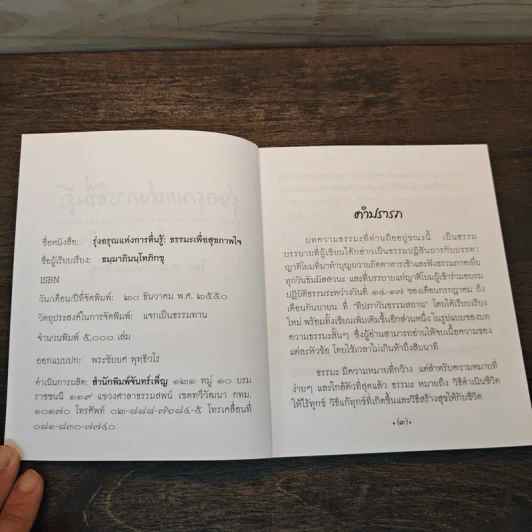 ชื่อหนังสือ: รุ่งอรุณแห่งการตื่นรู้: ธรรมะเพื่อสุขภาพใจ
ชื่อผู้เรียบเรียง: ธมฺมาภินนฺโทภิกขุ
ISBN
วัน/เดือน/ปีที่จัดพิมพ์: ๒๐ ธันวาคม พ.ศ. ๒๕๕๐
วัตถุประสงค์ในการจัดพิมพ์: แจกเป็นธรรมทาน
จำนวนพิมพ์ ๕,๐๐๐ เล่ม
ออกแบบปก: พระชัยยศ พุทฺธิวโร
ดำเนินการผลิต: สำนักพิมพ์จันทร์เพ็ญ ๑๒๑ หมู่ ๑๐ บรม
ราชชนนี ๑๑๙ แขวงศาลาธรรมสพน์ เขตทวีวัฒนา กทม.
๑๐๑๗๐ โทรศัพท์ ๐๒-๘๘๘-๗๐๘๔-๕ โทรเคลื่อนที่
๐๘๑-๘๓๐-๗๗๔๐
คำปรารภ
บทความธรรมะที่ท่านถืออยู่ขณะนี้ เป็นธรรม
บรรยายที่ผู้เขียนได้กล่าวเป็นธรรมปฏิสันถารกับบรรดา
ญาติโยมที่มาทำบุญถวายภัตตาหารเช้าและฟังธรรมภาคเย็น
ทุกวันธัมมัสสวนะ และที่บรรยายแก่ญาติโยมผู้เข้าร่วมอบรม
ปฏิบัติธรรมระหว่างวันที่ ๑๔-๑๗ ของเดือนกรกฎาคม ถึง
เดือนกันยายน ที่ "ทิปภาวันธรรมสถาน" โดยได้เรียบเรียง
ใหม่ พร้อมทั้งเขียนเพิ่มเติมขึ้นอีกส่วนหนึ่งในรูปของบท
ความธรรมะสั้นๆ ซึ่งผู้อ่านสามารถอ่านให้จบเนื้อความของ
แต่ละหัวข้อ โดยใช้เวลาไม่เกินห้าถึงสิบนาที
ธรรมะ มีความหมายที่กว้าง แต่สำหรับความหมายที่
ง่ายๆ และใกล้ตัวที่สุดแล้ว ธรรมะ หมายถึง วิธีดำเนินชีวิต
ให้ไร้ทุกข์ วิธีแก้ทุกข์ที่เกิดขึ้นและวิธีสร้างสุขให้กับชีวิต
(๓)